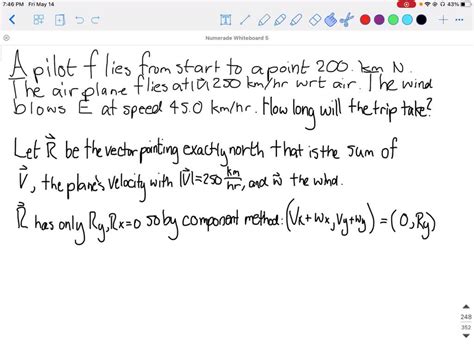 7:46 PM Fri May 14
43%
Numerade Whiteboard 5
A pilot flies from start to a point 200. km N.
The airplane flies at |v| 250 km/hr wrt air. The wind
blows E at speed 45.0 km/hr. How long will the trip take?
Let R⃗ be the vector pointing exactly north that is the sum of
V⃗, the plane's velocity with |V⃗|=250 km/hr, and w⃗ the wind.
R⃗ has only Ry, Rx=0 so by component method: (Vx+Wx, Vy+Wy) = (0, Ry)
248
352